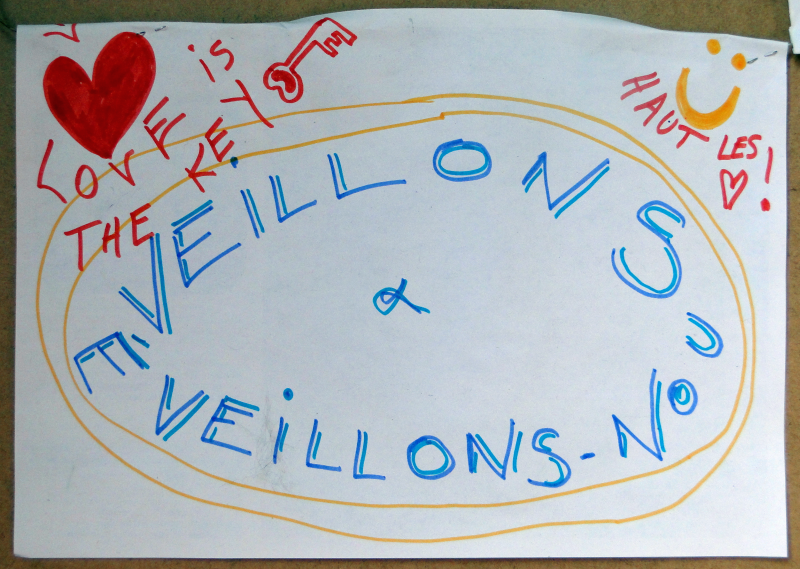 LOVE is
THE KEY
HAUT
LES ♡!
ÉVEiLLONS
&
VEiLLONS-NoU